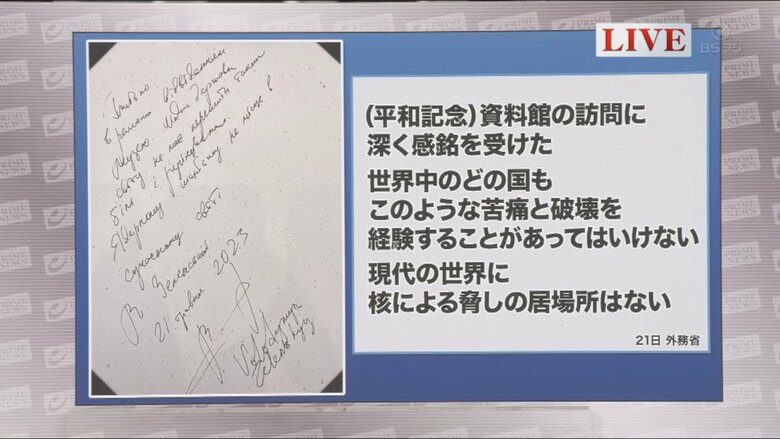 LIVE
BSフジ
Глибоко
вражений відвідинами
музею. Жодна держава
світу не має пережити такий
біль і руйнування.
Ядерному шантажу не місце в
сучасному світі
В Зеленський
21 травня 2023
Volodymyr
Zelenskyy
(平和記念)資料館の訪問に
深く感銘を受けた
世界中のどの国も
このような苦痛と破壊を
経験することがあってはいけない
現代の世界に
核による脅しの居場所はない
21日 外務省
PRIME NEWS